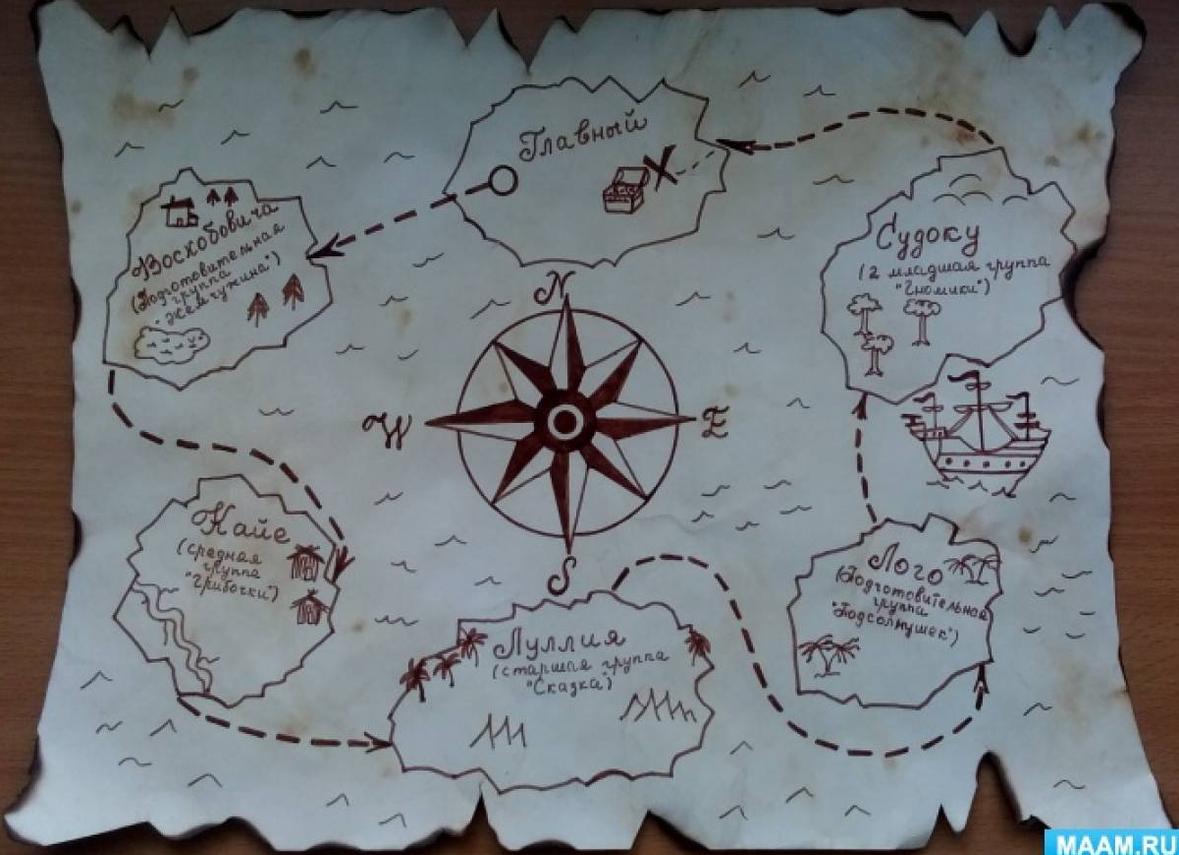 Главный
Воскобовича
(Подготовительная
группа
"Жемчужина")
Судоку
(2 младшая группа
"Гномики")
N
W
E
S
Кайе
(средная
группа
"Грибочки")
Луллия
(старшая группа
"Сказка")
Лого
(Подготовительная
группа
"Подсолнушек")
MAAM.RU